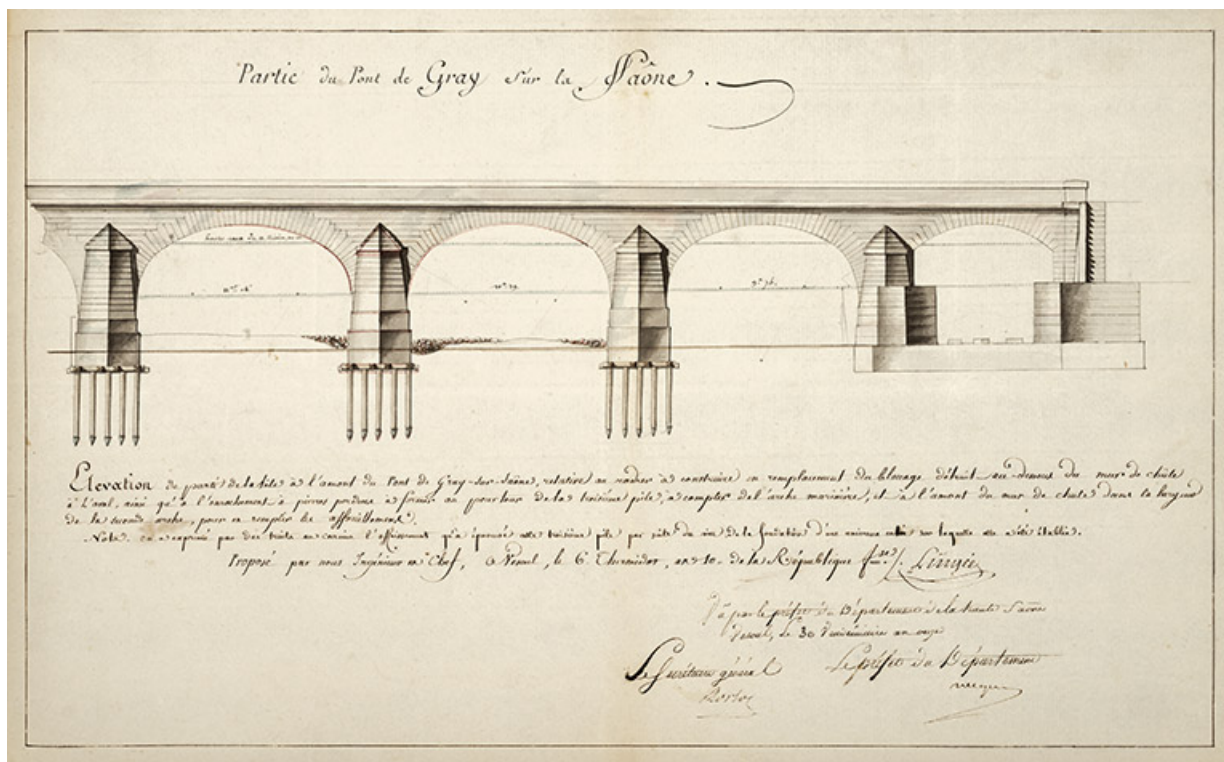 Partie du Pont de Gray sur la Saône.
Elevation de partie de la tête à l'amont du Pont de Gray-sur-Saône, relative au radier à construire en remplacement du blocage détruit au-dessus du mur de chûte
à l'aval, ainsi qu'à l'enrochement à pierres perdues à former au pourtour de la troisième pile, à compter de l'arche marinière, et à l'amont du mur de chute dans la largeur
de la seconde arche, pour en remplir les affouillemens.
Nota. on a exprimé par des traits au carmin l'affaissement qu'a éprouvé cette troisième pile par suite du vice de la fondation d'une ancienne sur laquelle elle a été établie.
Proposé par nous Ingénieur en Chef, à Vesoul, le 6. Thermidor, an 10. de la République
Vû par le préfet du Département de la haute Saône
Vesoul, le 30 Vendémiaire an onze
Le Secrétaire général
Le préfet du Département